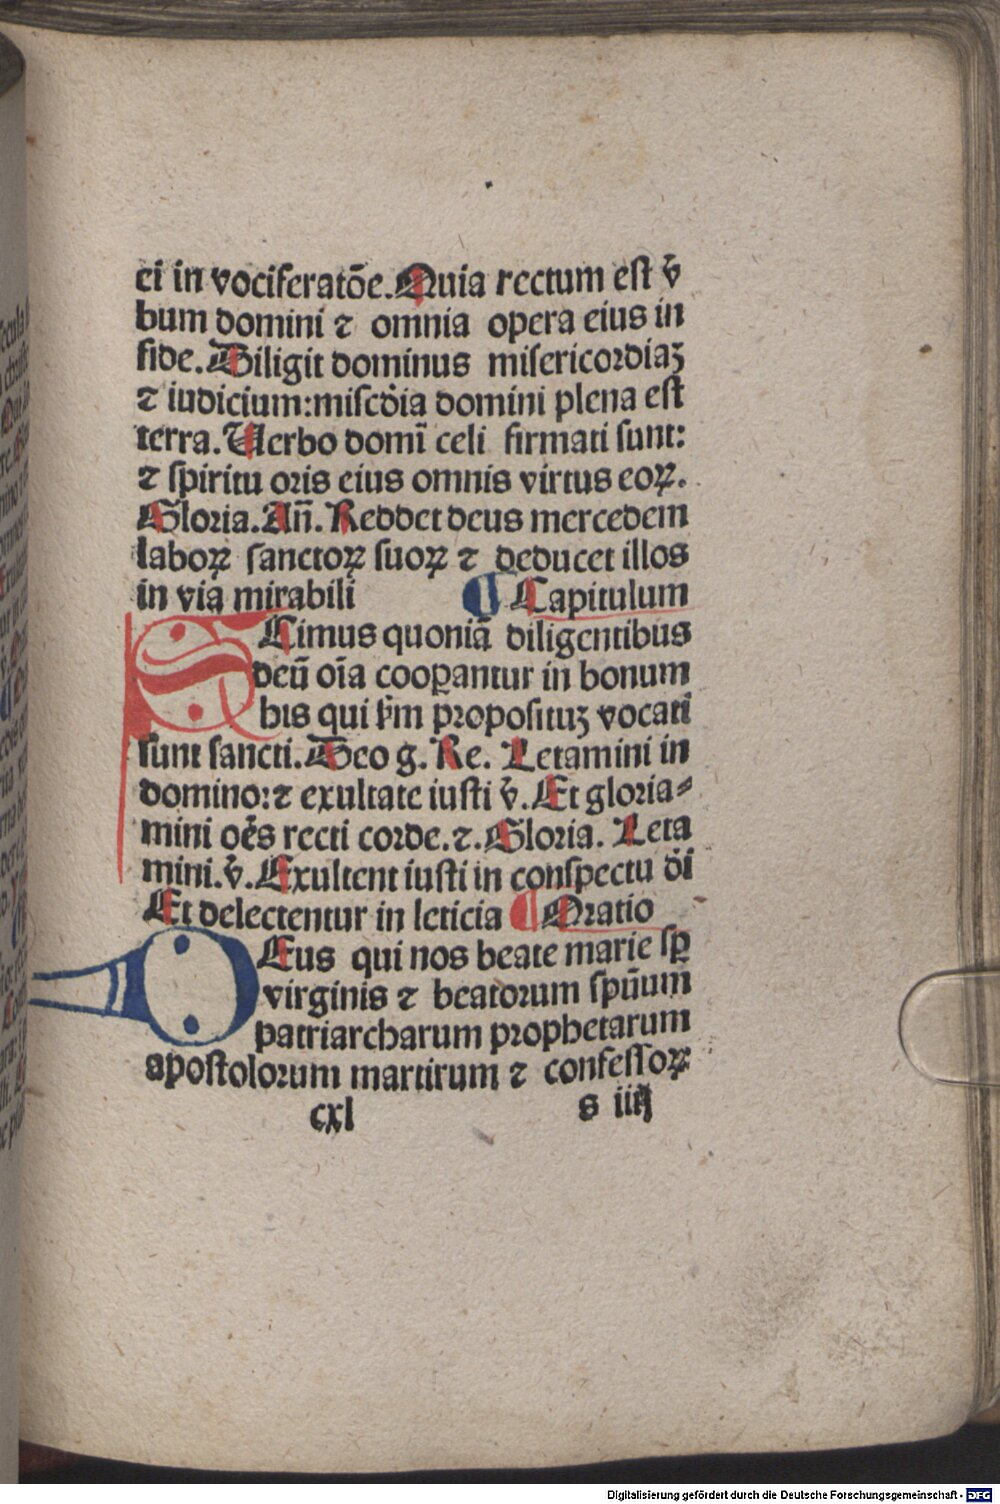 ei in vociferatōe. Quia rectum est v̄
bum domini ⁊ omnia opera eius in
fide. Diligit dominus misericordiaꝫ
⁊ iudicium: misc̄dia domini plena est
terra. Uerbo domī celi firmati sunt:
⁊ spiritu oris eius omnis virtus eoꝝ.
Gloria. An̄. Reddet deus mercedem
laboꝝ sanctoꝝ suoꝝ ⁊ deducet illos
in via mirabili ¶ Capitulum
SCimus quoniā diligentibus
deū oīa cooꝑantur in bonum
his qui ẜm proposituꝫ vocati
sunt sancti. Deo g. Re. Letamini in
domino: ⁊ exultate iusti v̄. Et gloria⸗
mini oēs recti corde. ⁊. Gloria. Leta
mini. v̄. Exultent iusti in conspectu dī
Et delectentur in leticia ¶ Oratio
DEus qui nos beate marie sꝑ
virginis ⁊ beatorum spūum
patriarcharum prophetarum
apostolorum martirum ⁊ confessoꝝ
cxl s iiij
Digitalisierung gefördert durch die Deutsche Forschungsgemeinschaft - DFG